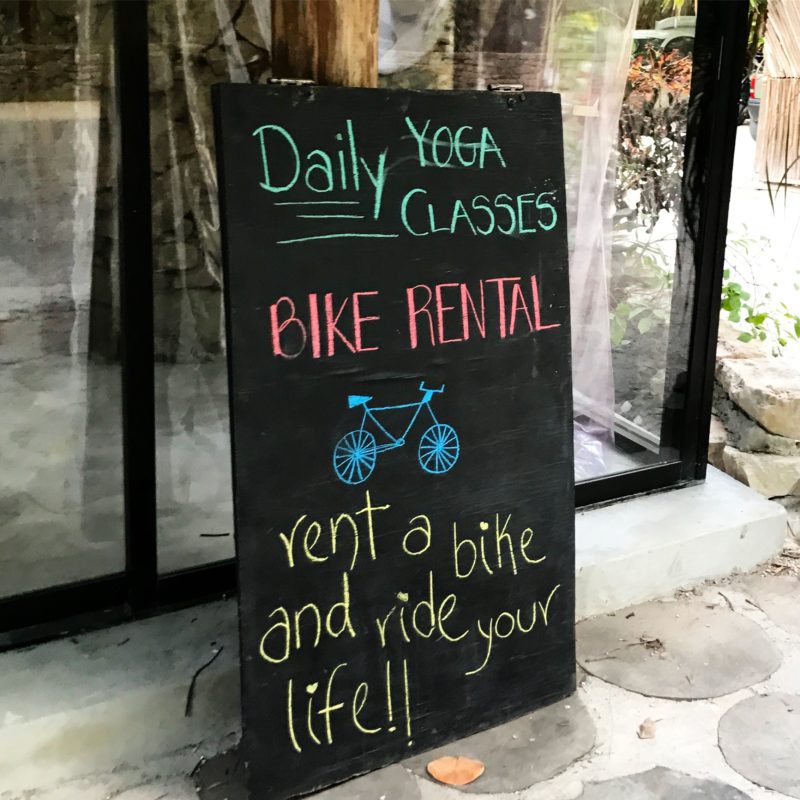 Daily YOGA
CLASSES
BIKE RENTAL
rent a bike
and ride your
life!!